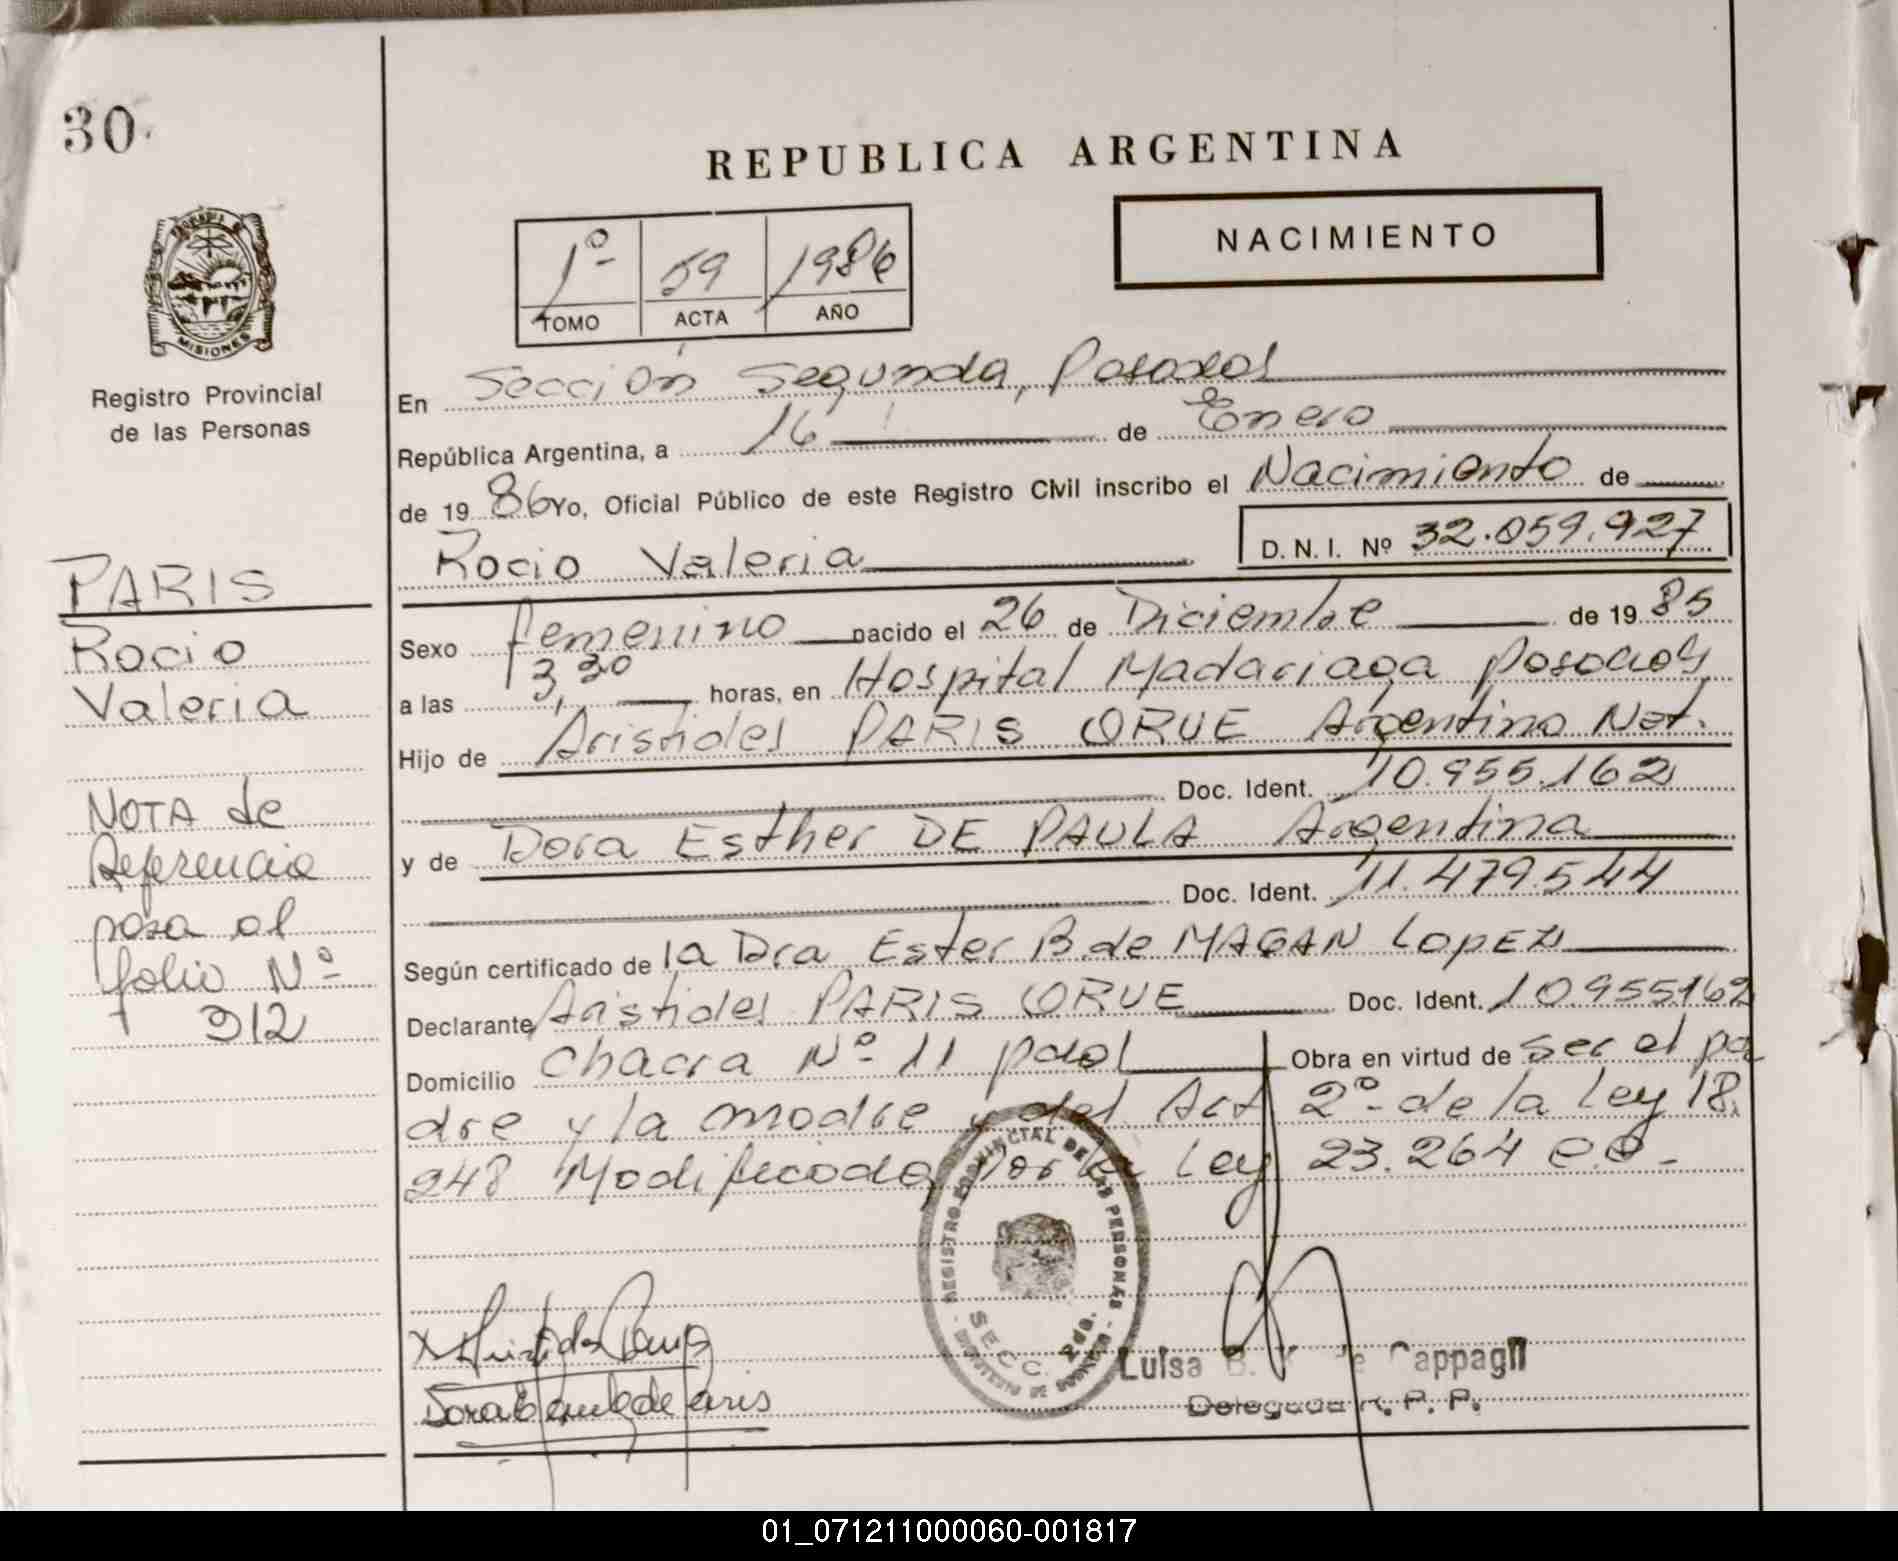 30
REPUBLICA ARGENTINA
NACIMIENTO
1º 59 1986
TOMO ACTA AÑO
PROVINCIA DE
MISIONES
Registro Provincial
de las Personas
PARIS
Rocio
Valeria
NOTA de
Referencia
pasa al
folio Nº
312
En Sección Segunda, Posadas
República Argentina, a 16 de Enero
de 1986 Yo, Oficial Público de este Registro Civil inscribo el Nacimiento de
Rocio Valeria D. N. I. Nº 32.059.927
Sexo femenino nacido el 26 de Diciembre de 1985
a las 3,30 horas, en Hospital Madariaga Posadas
Hijo de Aristides PARIS ORUE Argentino Nat.
Doc. Ident. 10.955.162
y de Dora Esther DE PAULA Argentina
Doc. Ident. 11.479.544
Según certificado de la Dra Ester B. de MAGAN LOPEZ
Declarante Aristides PARIS ORUE Doc. Ident. 10.955.162
Domicilio Chacra Nº 11 pdas Obra en virtud de ser el pa
dre y la madre y del Art 2º de la Ley 18.
248 Modificada por la Ley 23.264 e.e.-
REGISTRO PROVINCIAL DE LAS PERSONAS
SECC. 2da.
Luisa B. de Cappagli
Delegada R. P. P.
01_071211000060-001817